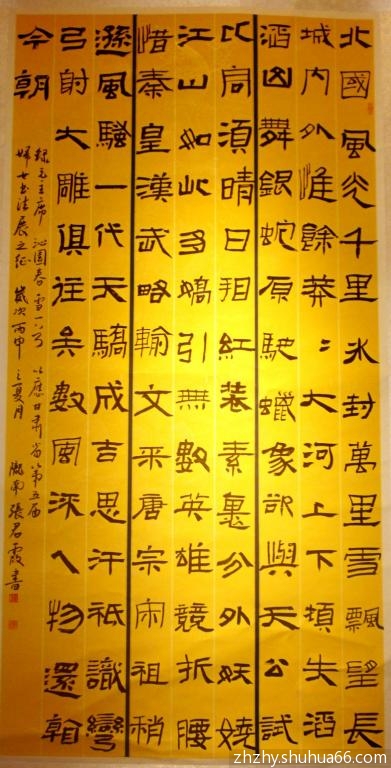 北國風光千里冰封萬里雪飄望長
城内外惟餘莽〻大河上下頓失滔
滔山舞銀蛇原馳蠟象欲與天公試
比高須晴日看紅裝素裹分外妖嬈
江山如此多嬌引無數英雄競折腰
惜秦皇漢武略輸文采唐宗宋祖稍
遜風騷一代天驕成吉思汗祗識彎
弓射大雕俱往矣數風流人物還看
今朝
録毛主席沁園春雪一首以應甘肅省第五届
婦女書法展之征歲次丙申之夏月隴南張君霞書
zhzhy.shuhua66.com